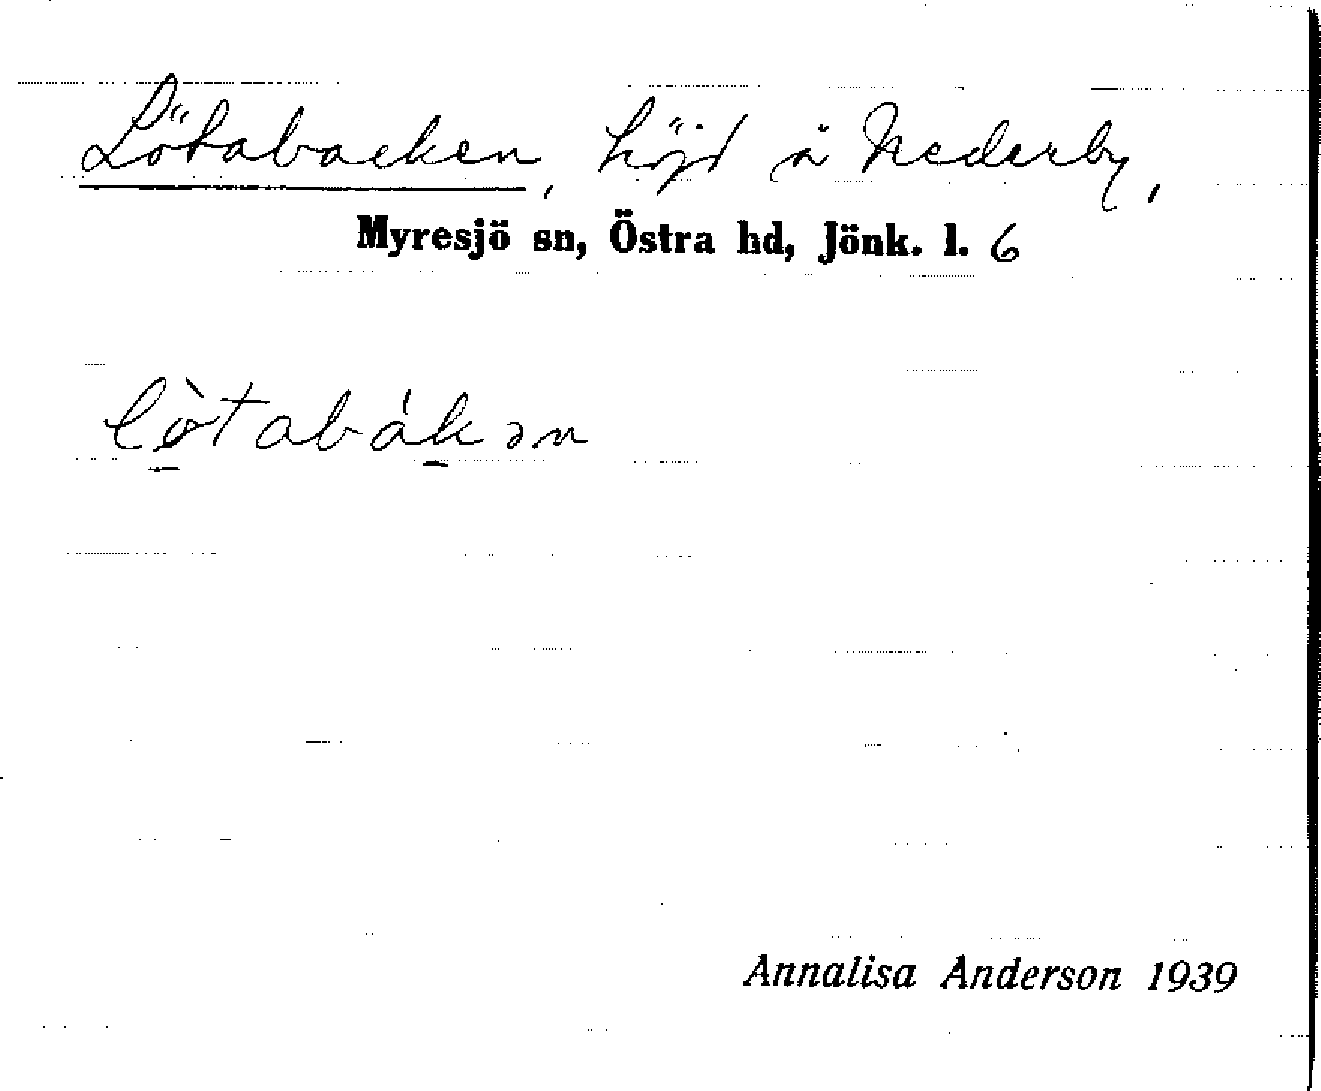 Lötabacken, höjd å Nederby,
Myresjö sn, Östra hd, Jönk. l. 6
lø̀tabákən
Annalisa Anderson 1939